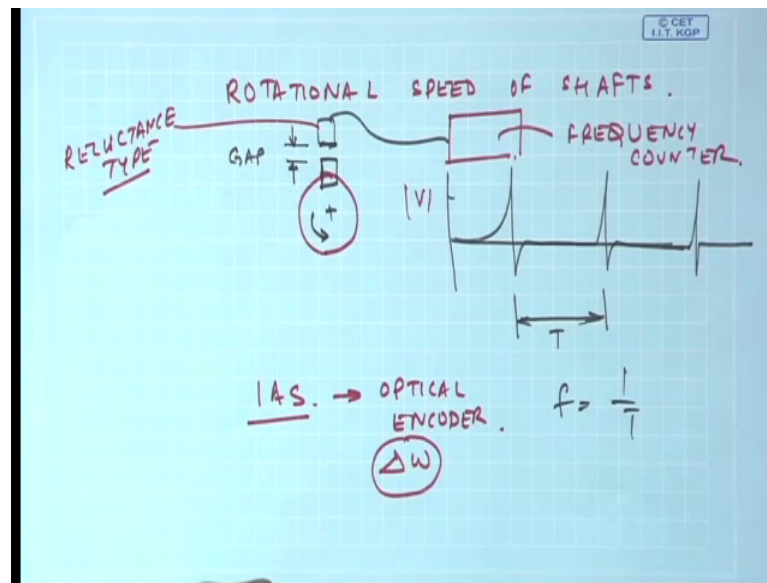 © CET
I.I.T. KGP
ROTATIONAL SPEED OF SHAFTS.
RELUCTANCE
TYPE
GAP
FREQUENCY
COUNTER.
|V|
T
IAS. → OPTICAL
ENCODER.
f = 1/T
Δω